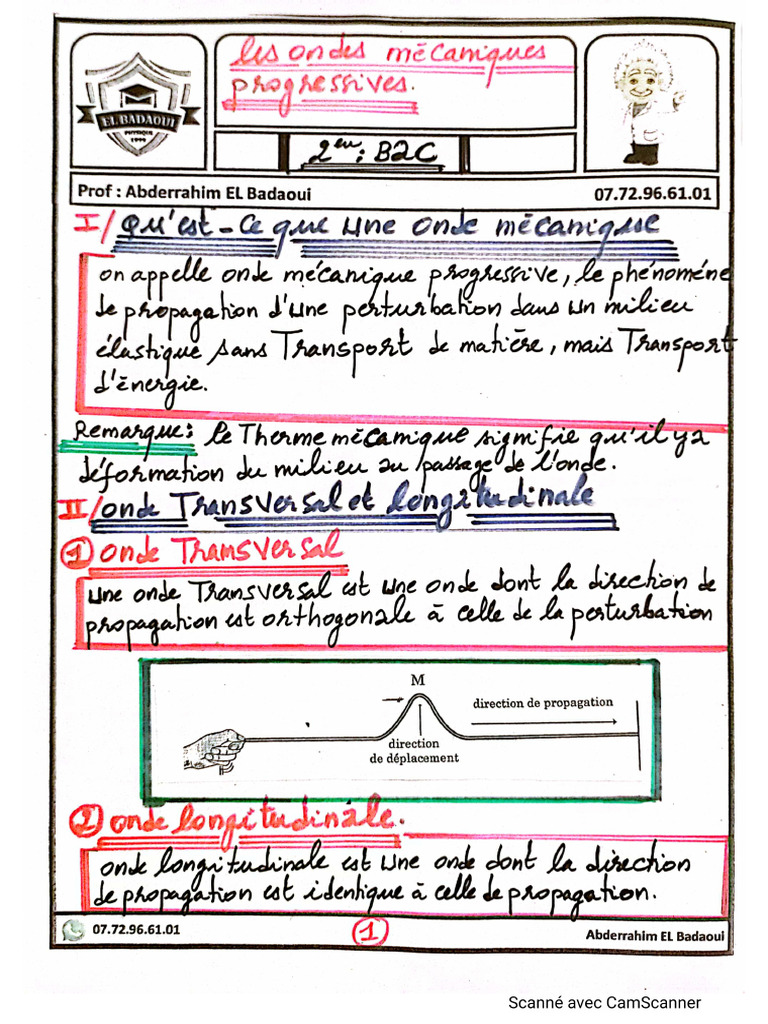 les ondes mécaniques
progressives.
EL BADAOUI
PHYSIQUE
1999
2eu : BAC
Prof : Abderrahim EL Badaoui
07.72.96.61.01
I/ Qu'est-ce que une onde mécanique
on appelle onde mécanique progressive, le phénoméne
de propagation d'une perturbation dans un milieu
élastique sans Transport de matière, mais Transport
d'énergie.
Remarque: le Therme mécamique signifie qu'il ya
déformation du milieu au passage de l'onde.
II/ onde Transversal et longitudinale
1 onde Transversal
une onde Transversal est une onde dont la direction de
propagation est orthogonale à celle de la perturbation
M
direction de propagation
direction
de déplacement
2 onde longitudinale.
onde longitudinale est une onde dont la direction
de propagation est identique à celle de propagation.
07.72.96.61.01
1
Abderrahim EL Badaoui
Scanné avec CamScanner